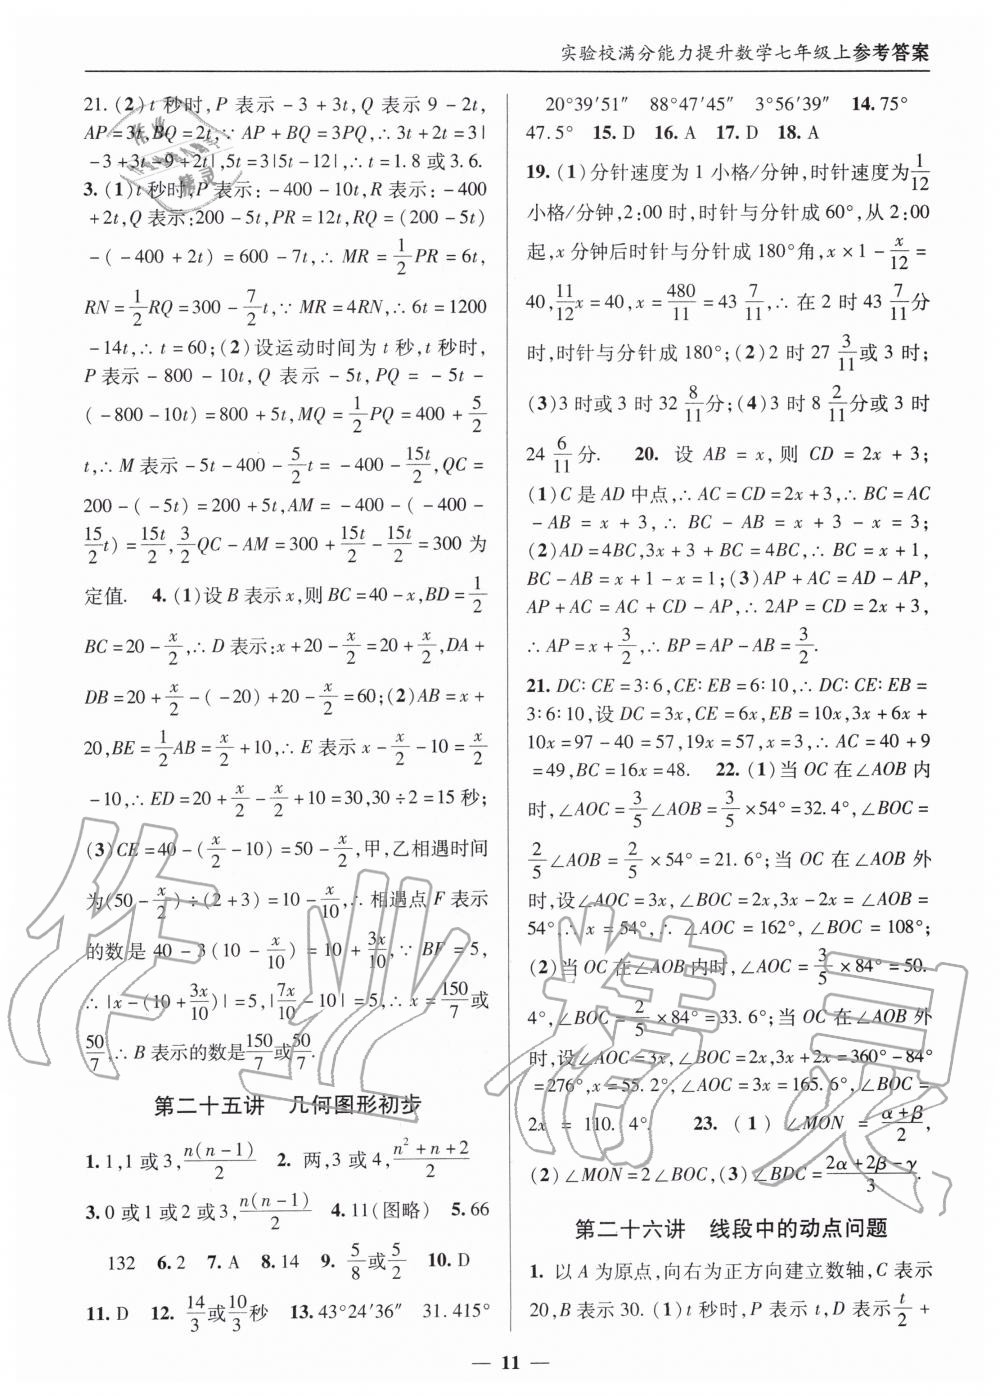 实验校满分能力提升数学七年级上参考答案
21. (2)t 秒时,P 表示 −3+3t,Q 表示 9−2t,
AP=3t,BQ=2t,∵ AP+BQ=3PQ,∴ 3t+2t=3|
−3+3t−9+2t|,5t=3|5t−12|,∴ t=1.8 或 3.6.
3. (1)t 秒时,P 表示:−400−10t,R 表示:−400
+2t,Q 表示:200−5t,PR=12t,RQ=(200−5t)
−(−400+2t)=600−7t,∴ MR=1/2PR=6t,
RN=1/2RQ=300−7/2t,∵ MR=4RN,∴ 6t=1200
−14t,∴ t=60;(2)设运动时间为 t 秒,t 秒时,
P 表示 −800−10t,Q 表示 −5t,PQ=−5t−
(−800−10t)=800+5t,MQ=1/2PQ=400+5/2
t,∴ M 表示 −5t−400−5/2t=−400−15t/2,QC=
200−(−5t)=200+5t,AM=−400−(−400−
15/2t)=15t/2,3/2QC−AM=300+15t/2−15t/2=300 为
定值. 4. (1)设 B 表示 x,则 BC=40−x,BD=1/2
BC=20−x/2,∴ D 表示:x+20−x/2=20+x/2,DA+
DB=20+x/2−(−20)+20−x/2=60;(2)AB=x+
20,BE=1/2AB=x/2+10,∴ E 表示 x−x/2−10=x/2
−10,∴ ED=20+x/2−x/2+10=30,30÷2=15 秒;
(3)CE=40−(x/2−10)=50−x/2,甲,乙相遇时间
为(50−x/2)÷(2+3)=10−x/10,∴ 相遇点 F 表示
的数是 40−3(10−x/10)=10+3x/10,∵ BF=5,
∴ |x−(10+3x/10)|=5,|7x/10−10|=5,∴ x=150/7或
50/7,∴ B 表示的数是150/7或50/7.
第二十五讲 几何图形初步
1. 1,1 或 3,n(n−1)/2 2. 两,3 或 4,(n²+n+2)/2
3. 0 或 1 或 2 或 3,n(n−1)/2 4. 11(图略) 5. 66
132 6. 2 7. A 8. 14 9. 5/8或5/2 10. D
11. D 12. 14/3或10/3秒 13. 43°24′36″ 31.415°
20°39′51″ 88°47′45″ 3°56′39″ 14. 75°
47.5° 15. D 16. A 17. D 18. A
19. (1)分针速度为 1 小格/分钟,时针速度为1/12
小格/分钟,2:00 时,时针与分针成 60°,从 2:00
起,x 分钟后时针与分针成 180°角,x×1−x/12=
40,11/12x=40,x=480/11=43 7/11,∴ 在 2 时 43 7/11分
时,时针与分针成 180°;(2)2 时 27 3/11或 3 时;
(3)3 时或 3 时 32 8/11分;(4)3 时 8 2/11分或 3 时
24 6/11分. 20. 设 AB=x,则 CD=2x+3;
(1)C 是 AD 中点,∴ AC=CD=2x+3,∴ BC=AC
−AB=x+3,∴ BC−AB=x+3−x=3;
(2)AD=4BC,3x+3+BC=4BC,∴ BC=x+1,
BC−AB=x+1−x=1;(3)AP+AC=AD−AP,
AP+AC=AC+CD−AP,∴ 2AP=CD=2x+3,
∴ AP=x+3/2,∴ BP=AP−AB=3/2.
21. DC∶CE=3∶6,CE∶EB=6∶10,∴ DC∶CE∶EB=
3∶6∶10,设 DC=3x,CE=6x,EB=10x,3x+6x+
10x=97−40=57,19x=57,x=3,∴ AC=40+9
=49,BC=16x=48. 22. (1)当 OC 在∠AOB 内
时,∠AOC=3/5∠AOB=3/5×54°=32.4°,∠BOC=
2/5∠AOB=2/5×54°=21.6°;当 OC 在∠AOB 外
时,设∠AOC=3x,∠BOC=2x,3x−2x=∠AOB=
54°∴ x=54°,∴ ∠AOC=162°,∠BOC=108°;
(2)当 OC 在∠AOB 内时,∠AOC=3/5×84°=50.
4°,∠BOC=2/5×84°=33.6°;当 OC 在∠AOB 外
时,设∠AOC=3x,∠BOC=2x,3x+2x=360°−84°
=276°,x=55.2°,∠AOC=3x=165.6°,∠BOC=
2x=110.4°. 23. (1)∠MON=(α+β)/2,
(2)∠MON=2∠BOC,(3)∠BDC=(2α+2β−γ)/3.
第二十六讲 线段中的动点问题
1. 以 A 为原点,向右为正方向建立数轴,C 表示
20,B 表示 30. (1)t 秒时,P 表示 t,D 表示t/2+
— 11 —
作业精灵